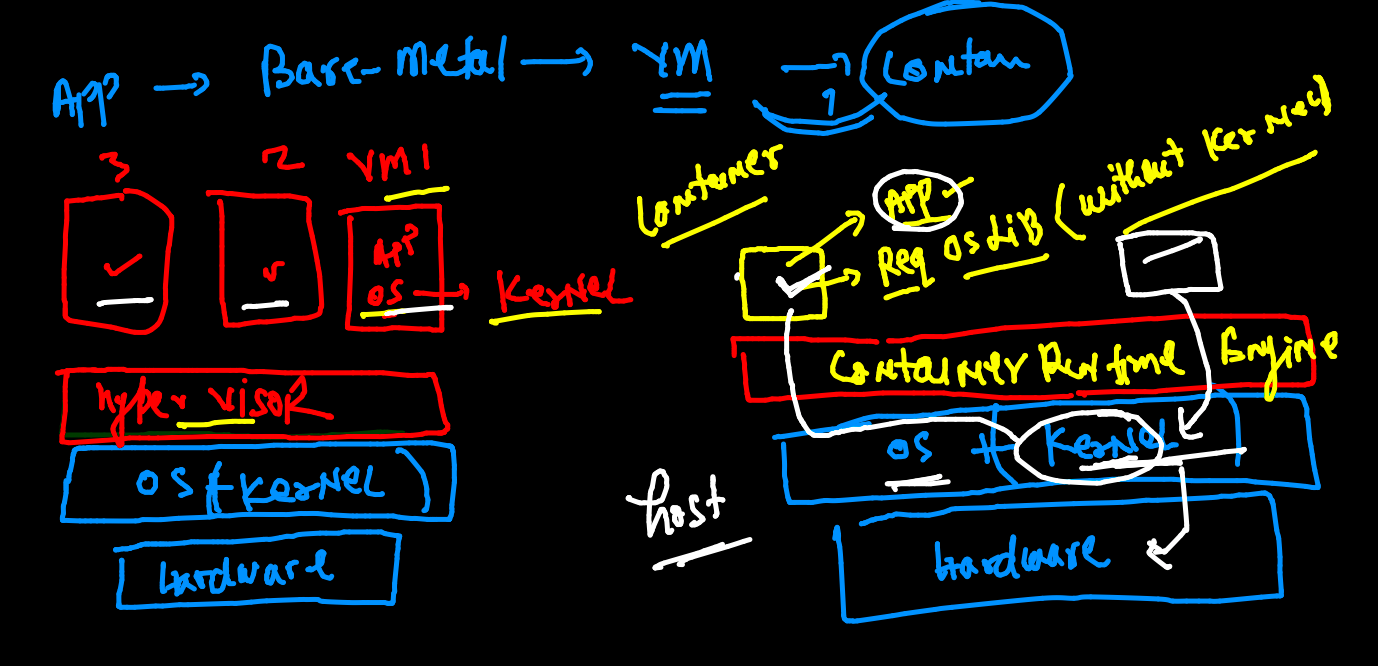 App → Bare-Metal → VM → Contain
?
3 2 VM1
App
OS → Kernel
hypervisor
OS + Kernel
Hardware
Container
App
Req OS Lib (without Kernel)
Container Runtime Engine
OS + Kernel
host
Hardware